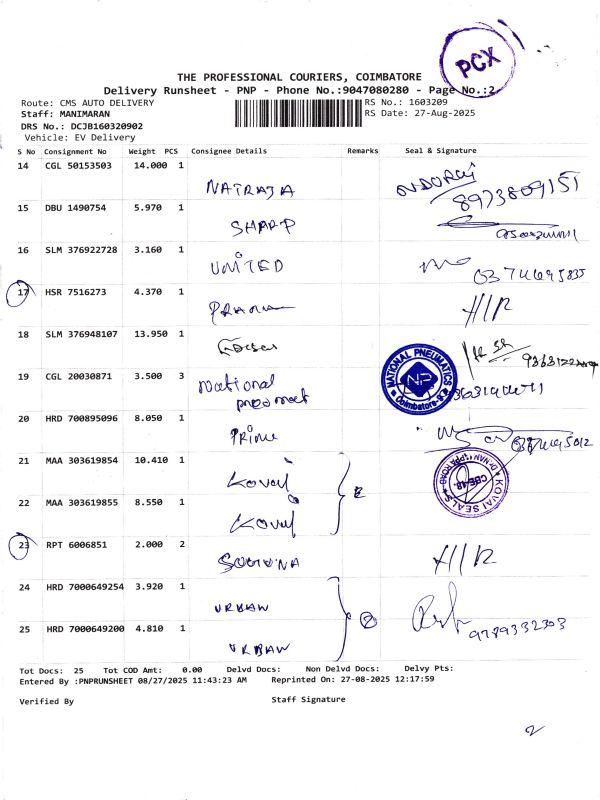 PCX
THE PROFESSIONAL COURIERS, COIMBATORE
Delivery Runsheet - PNP - Phone No.:9047080280 - Page No.:2
Route: CMS AUTO DELIVERY RS No.: 1603209
Staff: MANIMARAN RS Date: 27-Aug-2025
DRS No.: DCJB160320902
Vehicle: EV Delivery
S No Consignment No Weight PCS Consignee Details Remarks Seal & Signature
14 CGL 50153503 14.000 1
NATRAJA 8973809151
15 DBU 1490754 5.970 1
SHARP
16 SLM 376922728 3.160 1
UNITED
17 HSR 7516273 4.370 1
H/R
18 SLM 376948107 13.950 1
19 CGL 20030871 3.500 3
National
NATIONAL PNEUMATICS
NP
Coimbatore
20 HRD 700895096 8.050 1
PRIME
21 MAA 303619854 10.410 1
Kovai
KOVAI SEALS
22 MAA 303619855 8.550 1
Kovai
23 RPT 6006851 2.000 2
H/R
24 HRD 7000649254 3.920 1
URBAN
2
9789332303
25 HRD 7000649200 4.810 1
URBAN
Tot Docs: 25 Tot COD Amt: 0.00 Delvd Docs: Non Delvd Docs: Delvy Pts:
Entered By :PNPRUNSHEET 08/27/2025 11:43:23 AM Reprinted On: 27-08-2025 12:17:59
Verified By Staff Signature
2